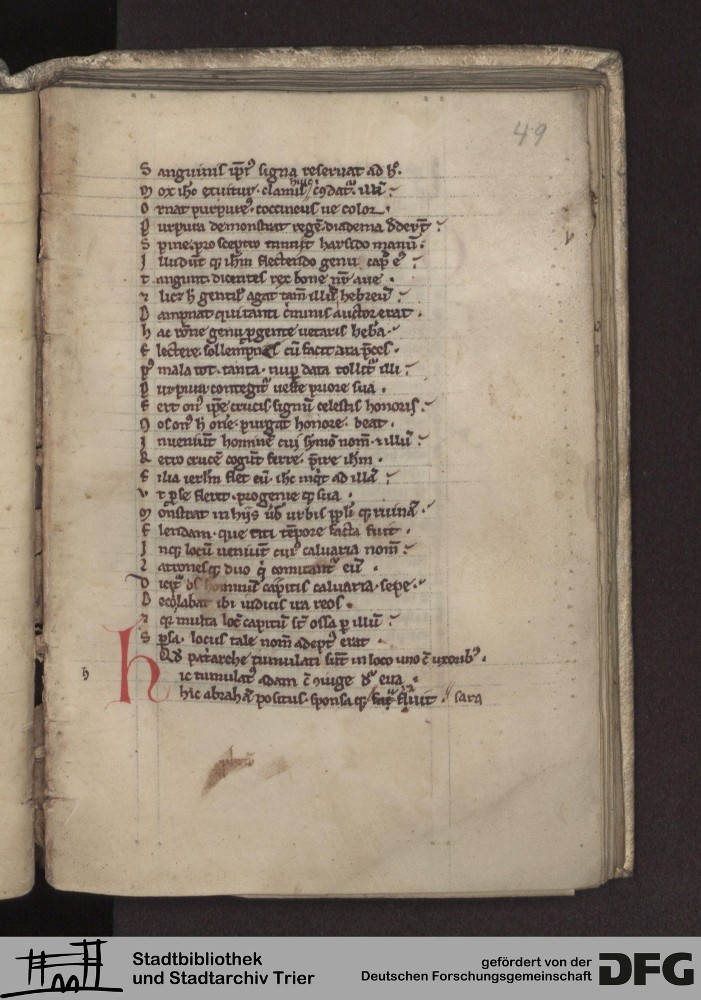 49
S anguinis ip̄ı᷒ signa reseruat ad h᷒.
M ox ih̄o exuitur. clamis
O rnat purpure᷒. coccineus ue color.
P urpura demonstrat regē. diadema
S pine. pro sceptro munit harūdo manū.
I lludūt q̨ ih̄m flectendo genu cap̄ e᷒
T angunt. dicentes rex bone nr̄ aue.
gentil᷒ agat tam̄ illū hebreū
D ampnat qui tanti c̓minis auctor erat.
h ac rōne genu
F lectere. sollempnes cū facit ara p̄ces.
P᷒ mala tot. tanta. nup̄ data tollit᷒ illi
P urpura. contegit᷒ ueste p̓ore sua.
F ert on᷒ ip̄e crucis. signū celestis honoris.
honore. beat.
I nueniūt hominē cui symō nom̄. illū
R etro crucē cogūt ferre. p̄ire ih̄m.
F ilia ier̄lm flet eū. ih̄c inq̓t ad illā
V t p̱ se fleret. progenie q̨ sua.
M onstrat in hiis ūb᷒ urbis pp̄li q̨ ruinā.
F lendam. que titi tēpore facta fuit.
I nq̨ locū ueniūt cui᷒ caluaria nom̄
L atrones q̨ duo q̓ comitant᷒ eū.
D icit᷒ caluaria. sepe.
D ecollabat ibi iudicis ira reos.
q̨ multa loc᷒ capitū st̄ ossa p̱ illū
S p̱sa. locus tale nom̄ adept᷒ erat
Qđ pat̓arche tumulati sūt in loco uno c̄ uxorib᷒.
h
hic tumulat᷒ adam c̄ ɔiuge eua.
hic abrahā positus. sponsa q̨ sara
Stadtbibliothek
und Stadtarchiv Trier
gefördert von der
Deutschen Forschungsgemeinschaft
DFG